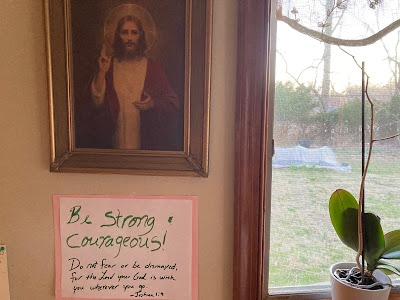 Be Strong &
Courageous!
Do not fear or be dismayed,
for the Lord your God is with
you wherever you go.
-Joshua 1:9